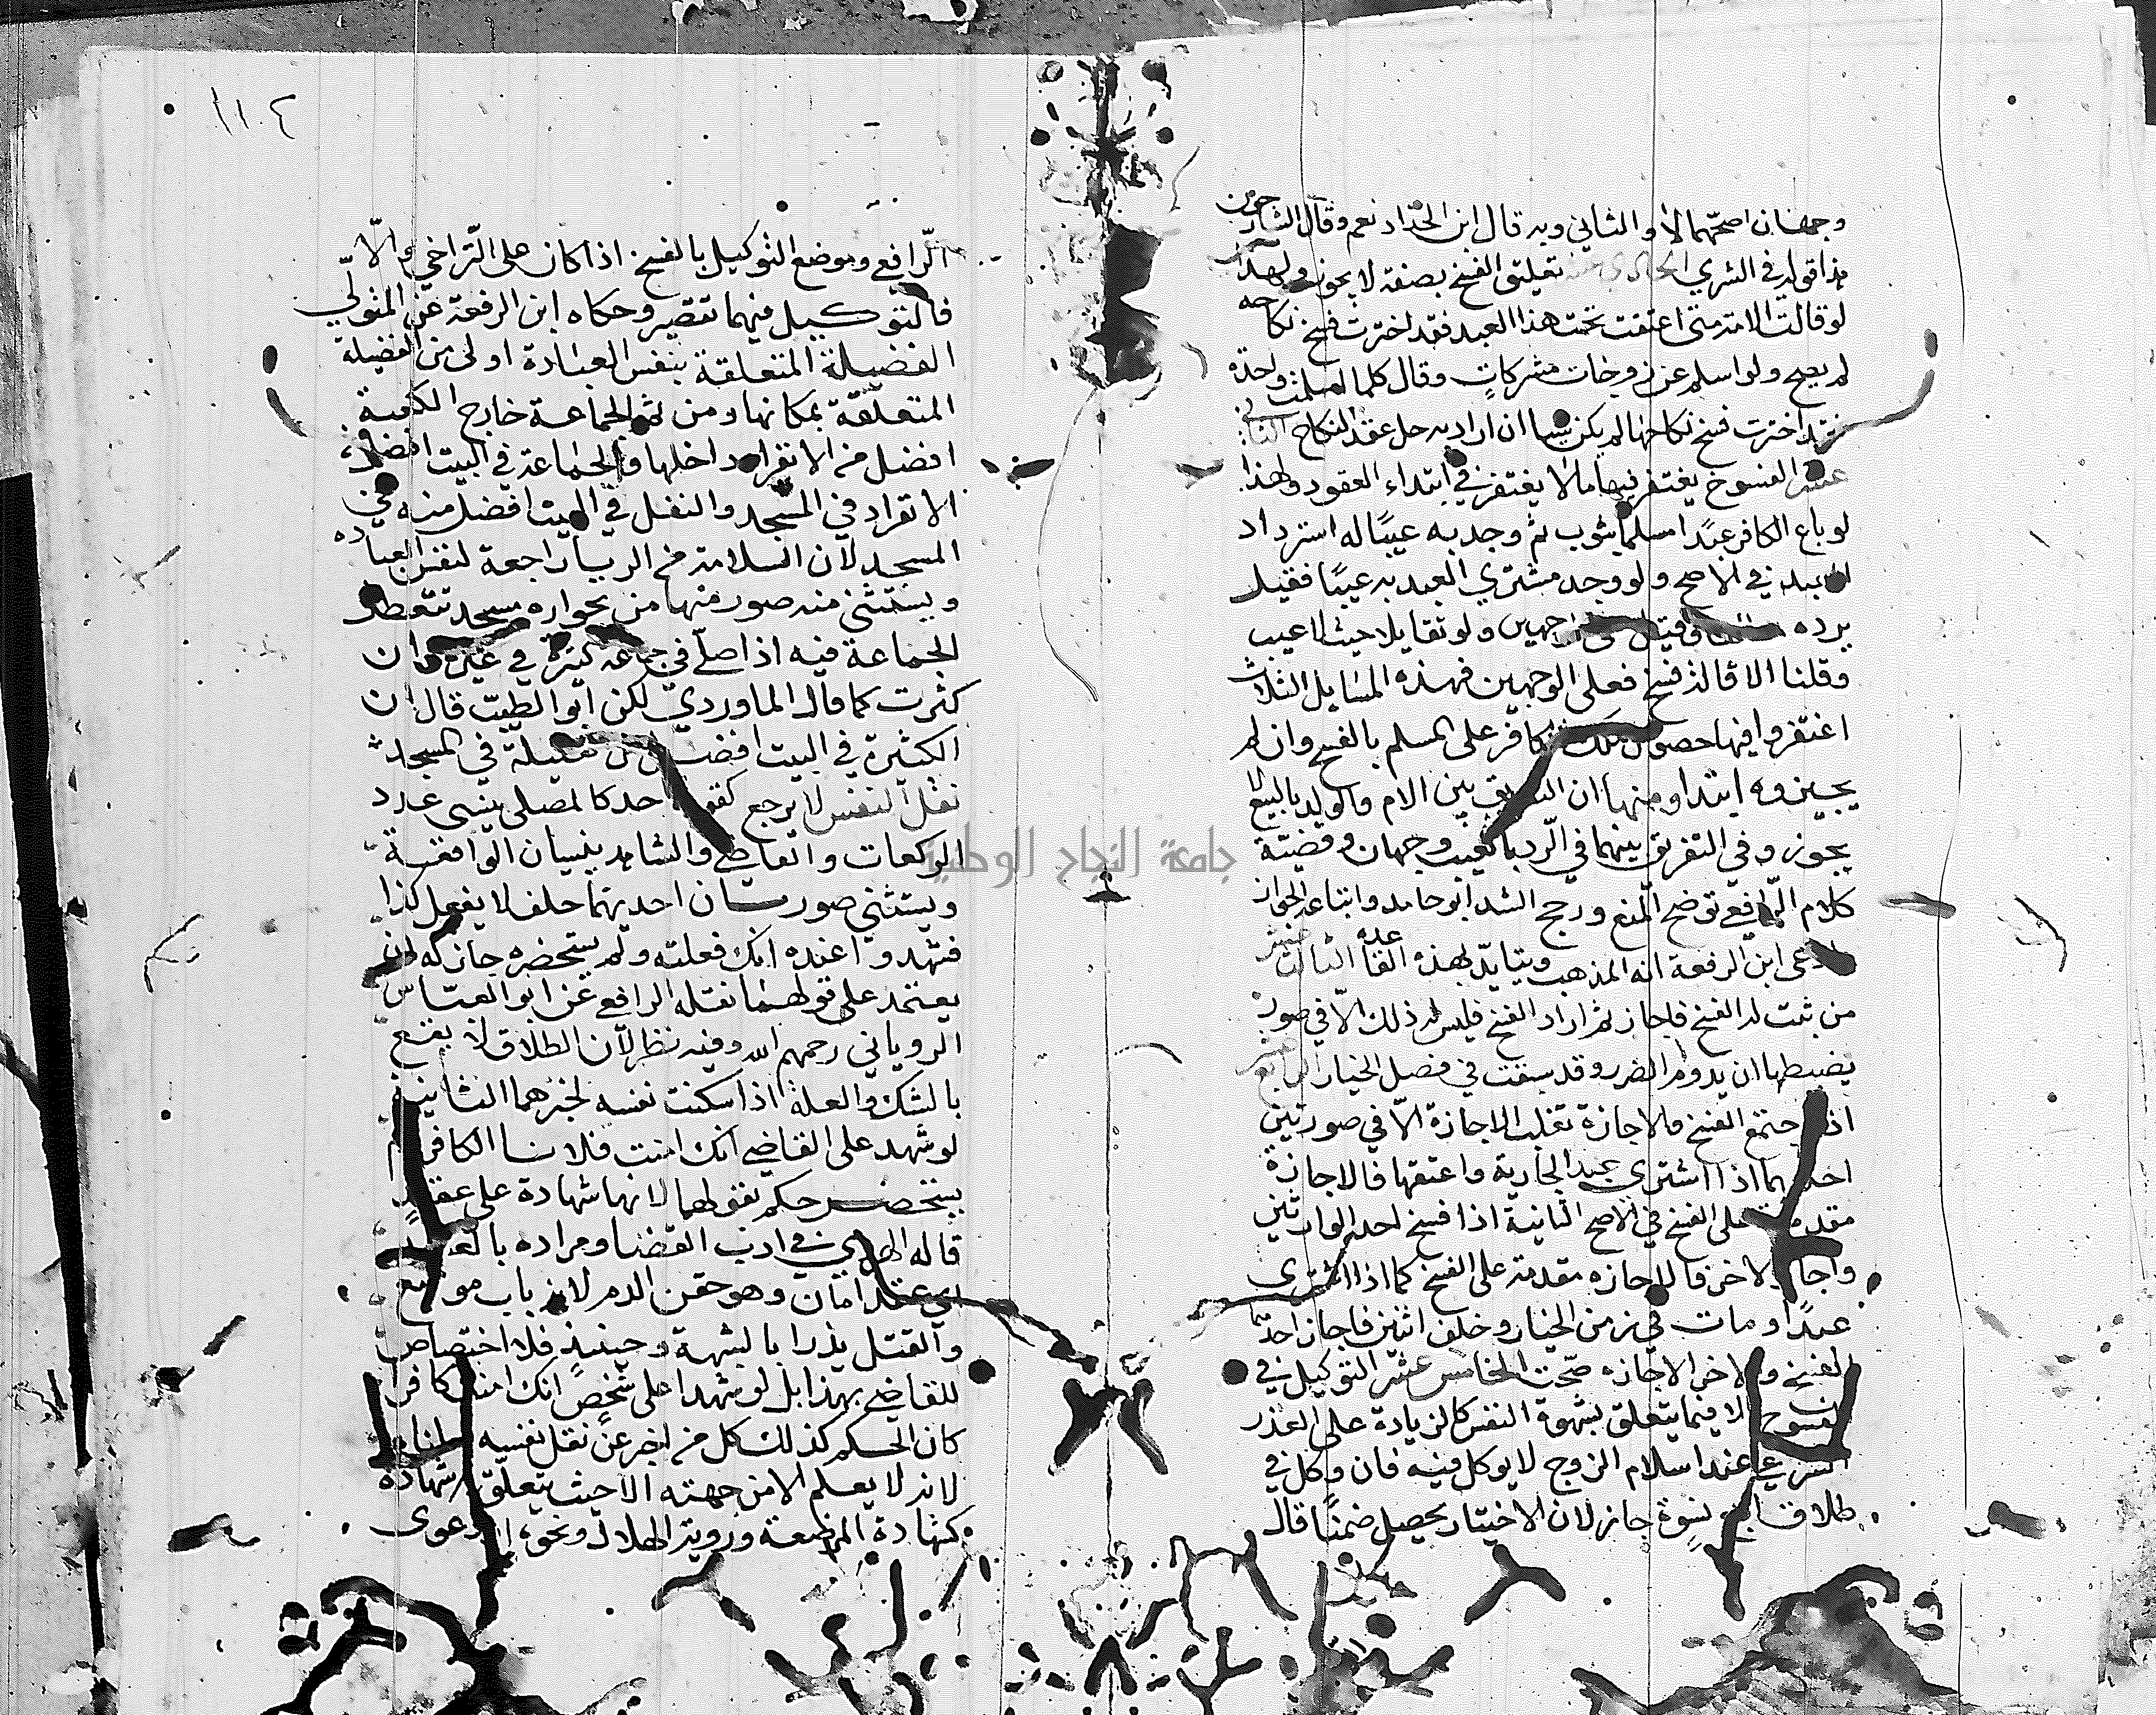 وجهان اصحهما لا والثاني وبه قال ابن الحداد نعم وقال الشارحون
هذا قوله في الشري تعليق الفسخ بصفة لا يجوز ولهذا
لو قالت الامة متى اعتقت تحت هذا العبد فقد اخترت فسخ نكاحه
لم يصح ولو اسلم عن زوجات مشركات وقال كلما اسلمت واحدة
فقد اخترت فسخ نكاحها لم يكن شيا ان اراد به حل عقد النكاح الثاني
عشر الفسوخ يغتفر فيها ما لا يغتفر في ابتداء العقود ولهذا
لو باع الكافر عبدا مسلما بثوب ثم وجد به عيبا له استرداد
العبد في الاصح ولو وجد مشتري العبد به عيبا فقيل
يرده وجهين ولو تقايلا حيث لا عيب
وقلنا الاقالة فسخ فعلى الوجهين فهذه المسايل الثلاث
اغتفروا فيها حصول ملك الكافر على المسلم بالفسخ وان لم
يجيزوه ابتدا ومنها ان التفريق بين الام والولد بالبيع لا
يجوز وفي التفريق بينهما في الرد بالعيب وجهان وقضية
كلام الرافعي توضح المنع ورجح الشد ابو حامد واتباعه الجواز
وادعى ابن الرفعة انه المذهب ويتايد بهذه القاعدة الثالث عشر
من ثبت له الفسخ فاجاز ثم اراد الفسخ فليس له ذلك الا في صور
يضبطها ان يدوم الضرر وقد سبقت في فصل الخيار الرابع عشر
اذا اجتمع الفسخ والاجازة تغلب الاجازة الا في صورتين
احديهما اذا اشترى عبدا بجارية واعتقها فالاجازة
مقدمة على الفسخ في الاصح الثانية اذا فسخ احد الوارثين
واجاز الاخر فالاجازه مقدمة على الفسخ كما اذا اشترى
عبدا ومات في زمن الخيار وخلف اثنين فاجاز احدهما
الفسخ والاخر الاجازه صحت الخامس عشر التوكيل في
الفسوخ الا فيما يتعلق بشهوة النفس كالزيادة على العذر
الشرعي عند اسلام الزوج لا يوكل فيه فان وكل في
طلاق نسوة جاز لان الاختيار يحصل ضمنا قال
١١٤
الرافعي وموضع التوكيل بالفسخ اذا كان على التراخي والا
فالتوكيل فيهما تقصير وحكاه ابن الرفعة عن المتولي
الفضيلة المتعلقة بنفس العبادة اولى من الفضيلة
المتعلقة بمكانها ومن ثم الجماعة خارج الكعبة
افضل من الانفراد داخلها والجماعة في البيت افضل من
الانفراد في المسجد والنفل في البيت افضل منه في
المسجد لان السلامة من الريا راجعة لنفس العباده
ويستثنى منه صور منها من بجواره مسجد تتعطل
الجماعة فيه اذا صلى في جماعة كثيرة في غيره وان
كثرت كما قال الماوردي لكن ابو الطيب قال ان
الكثيرة في البيت افضل من قليلة في المسجد
نقل النفس لا يرجع كقول احد كالمصلي ينسى عدد
الركعات والقاضي والشاهد ينسيان الواقعة
ويستثني صورتان احديهما حلف لا يفعل كذا
فشهدوا عنده انك فعلته ولم يستحضره جاز له ان
يعتمد على قولهما نقله الرافعي عن ابو العباس
الروياني رحمهم الله وفيه نظر لان الطلاق لا يقع
بالشك والعلة اذا سكنت نفسه لخبرهما الثانية
لو شهد على القاضي انك امنت فلانا الكافر ولم
يستحضر حكم بقولهما لانها شهادة على عقد
قاله الهروي في ادب القضا ومراده بالعقد
اي عقد امان وهو حقن الدم لانه باب موسع
والقتل يذرا بالشبهة وحينيذ فلا اختصاص
للقاضي بهذا بل لو شهدا على شخص انك امنت كافرا
كان الحكم كذلك كل من اخبر عن نقل نفسه
لانه لا يعلم الا من جهته الا حيث يتعلق شهادة
كشهادة المرضعة وروية الهلال ونحوه الدعوى
جامعة النجاح الوطنية